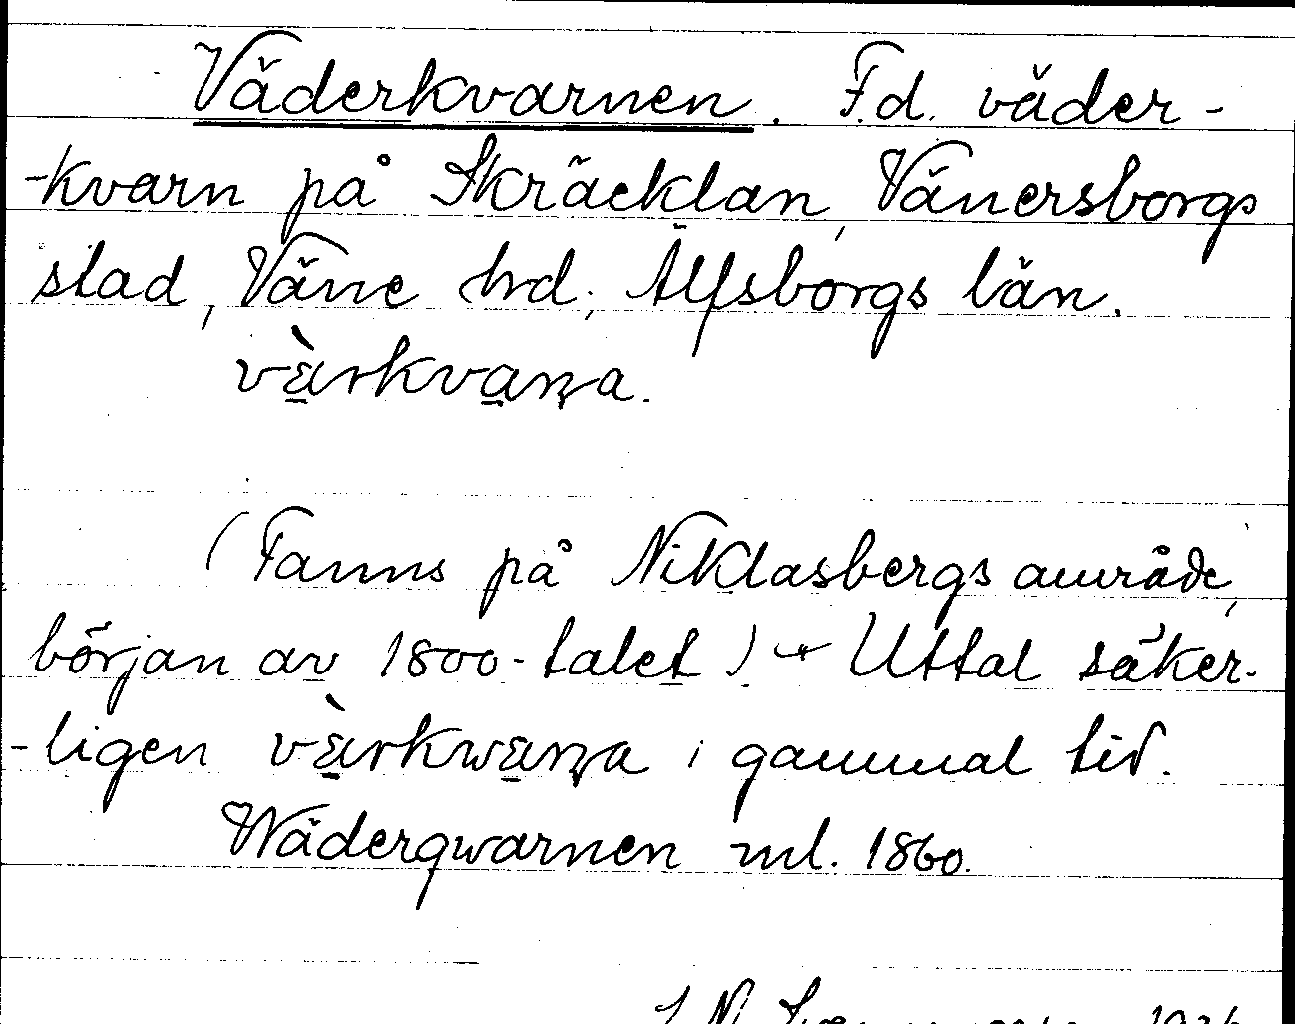 Väderkvarnen. F.d. väder-
-kvarn på Skräcklan, Vänersborgs
stad, Väne hrd, Älfsborgs län.
vä̀rkvaṇa.
(Fanns på Niklasbergs område,
början av 1800-talet) Uttal säker-
-ligen vä̀rkwaṇa i gammal tid.
Wäderqwarnen ml. 1860.